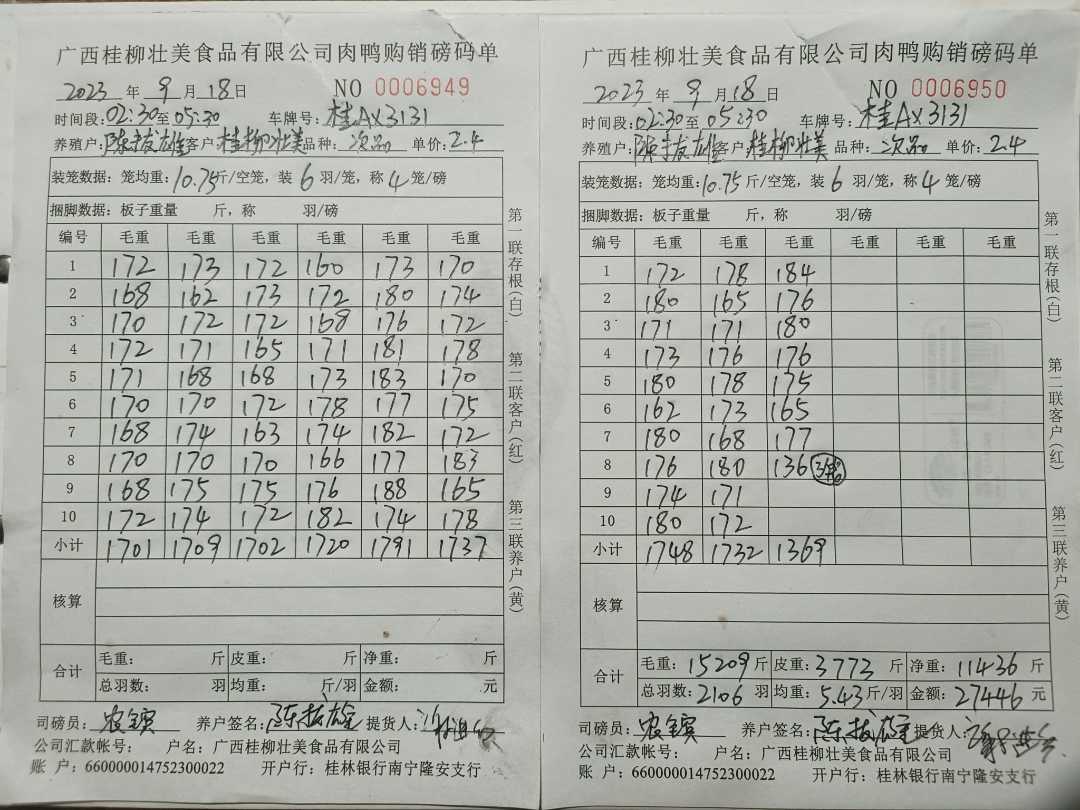 广西桂柳壮美食品有限公司肉鸭购销磅码单
2023 年 9 月 18 日 NO 0006949
时间段: 02:30 至 05:30 车牌号: 桂AX3131
养殖户: 陈拔雄 客户: 桂柳壮美 品种: 次品 单价: 2.4
装笼数据: 笼均重: 10.75 斤/空笼, 装 6 羽/笼, 称 4 笼/磅
捆脚数据: 板子重量 斤, 称 羽/磅
编号 毛重 毛重 毛重 毛重 毛重 毛重
1 172 173 172 160 173 170
2 168 162 173 172 180 174
3 170 172 172 168 176 172
4 172 171 165 171 181 178
5 171 168 168 173 183 170
6 170 170 172 178 177 175
7 168 174 163 174 182 172
8 170 170 170 166 177 183
9 168 175 175 176 188 165
10 172 174 172 182 174 178
小计 1701 1709 1702 1720 1791 1737
核算
合计 毛重: 斤 皮重: 斤 净重: 斤
总羽数: 羽 均重: 斤/羽 金额: 元
司磅员: 农 养户签名: 陈拔雄 提货人:
公司汇款帐号: 户名: 广西桂柳壮美食品有限公司
账 户: 660000014752300022 开户行: 桂林银行南宁隆安支行
第一联存根(白) 第二联客户(红) 第三联养户(黄)
广西桂柳壮美食品有限公司肉鸭购销磅码单
2023 年 9 月 18 日 NO 0006950
时间段: 02:30 至 05:30 车牌号: 桂AX3131
养殖户: 陈拔雄 客户: 桂柳壮美 品种: 次品 单价: 2.4
装笼数据: 笼均重: 10.75 斤/空笼, 装 6 羽/笼, 称 4 笼/磅
捆脚数据: 板子重量 斤, 称 羽/磅
编号 毛重 毛重 毛重 毛重 毛重 毛重
1 172 178 184
2 180 165 176
3 171 171 180
4 173 176 176
5 180 178 175
6 162 173 165
7 180 168 177
8 176 180 136
9 174 171
10 180 172
小计 1748 1732 1369
核算
合计 毛重: 15209 斤 皮重: 3773 斤 净重: 11436 斤
总羽数: 2106 羽 均重: 5.43 斤/羽 金额: 27446 元
司磅员: 农 养户签名: 陈拔雄 提货人:
公司汇款帐号: 户名: 广西桂柳壮美食品有限公司
账 户: 660000014752300022 开户行: 桂林银行南宁隆安支行
第一联存根(白) 第二联客户(红) 第三联养户(黄)